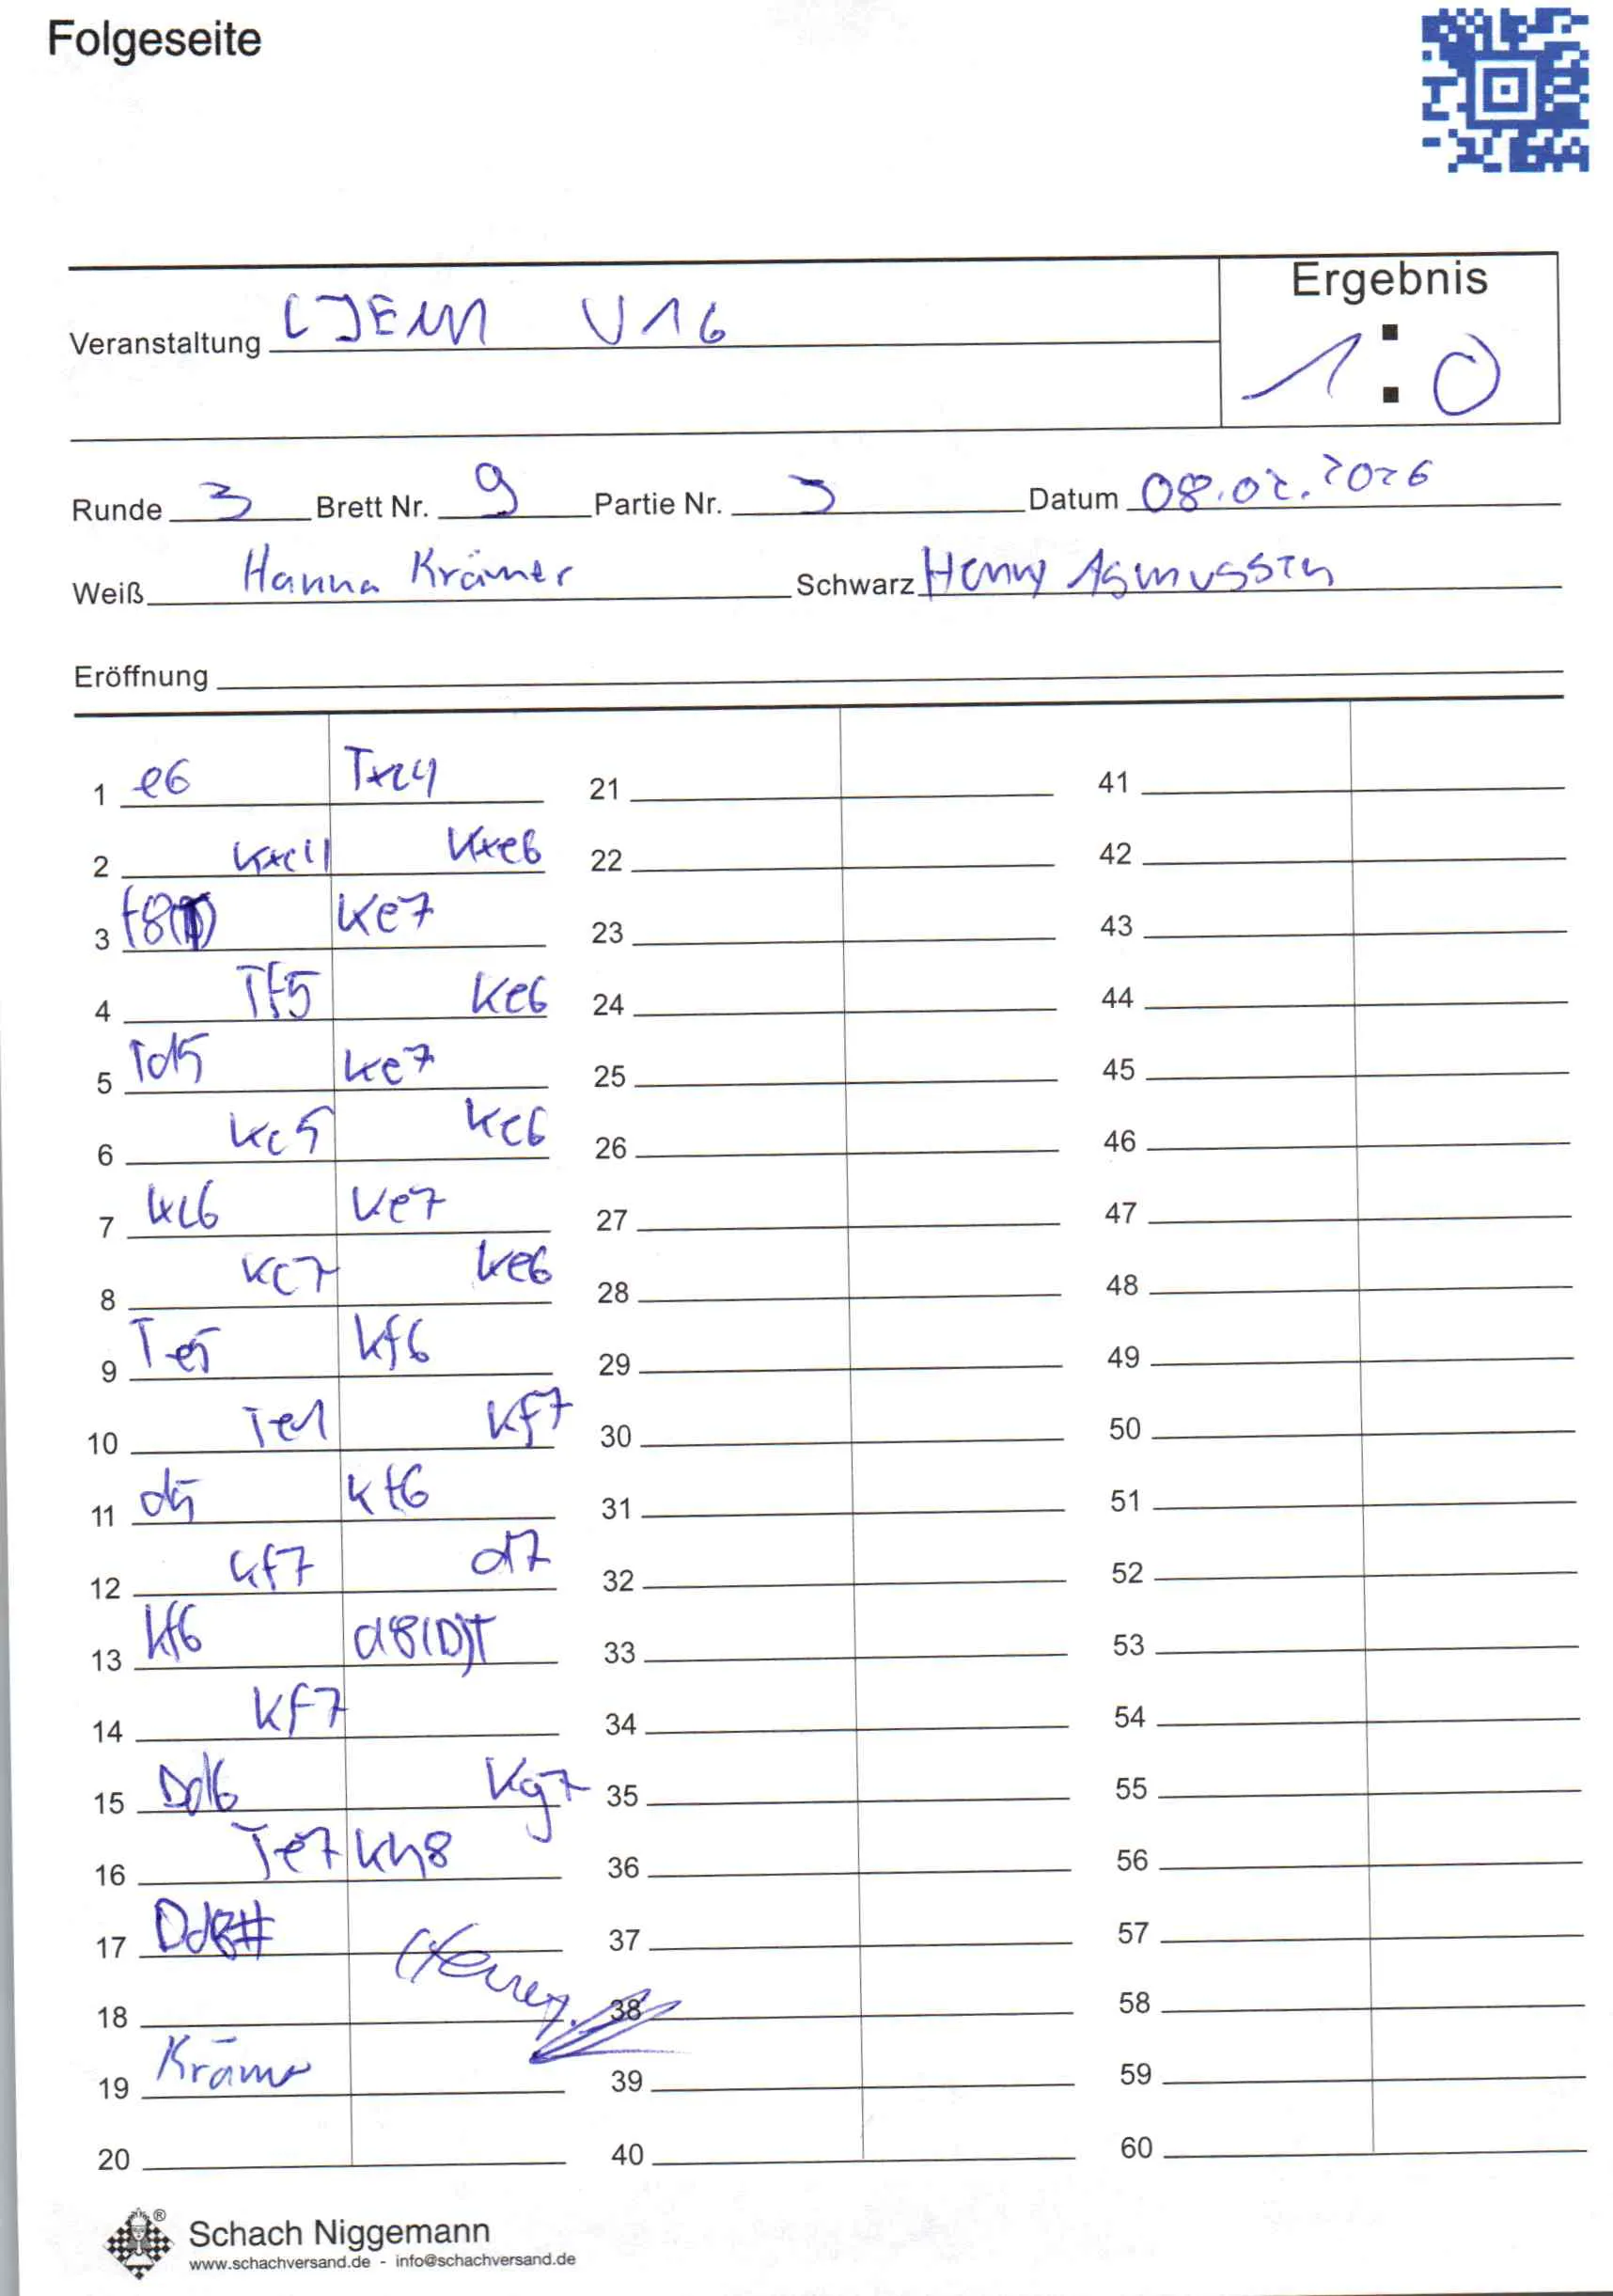 Folgeseite
Ergebnis
Veranstaltung LJEM U16
1:0
Runde 3 Brett Nr. 9 Partie Nr. 3 Datum 08.02.2026
Weiß Hanna Krämer Schwarz Henny Asmussen
Eröffnung
1 e6 Txc4 21 41
2 Kxc4 Kxe6 22 42
3 f8(T) Ke7 23 43
4 Tf5 Ke6 24 44
5 Td5 Ke7 25 45
6 Kc5 Ke6 26 46
7 Kc6 Ke7 27 47
8 Kc7 Ke6 28 48
9 Te5 Kf6 29 49
10 Te1 Kf7 30 50
11 d5 Kf6 31 51
12 Kf7 d7 32 52
13 Kf6 d8(D)† 33 53
14 Kf7 34 54
15 Dd6 Kg7 35 55
16 Te7 Kh8 36 56
17 Dd8# 37 57
18 38 58
19 Krämer 39 59
20 40 60
® Schach Niggemann
www.schachversand.de - info@schachversand.de